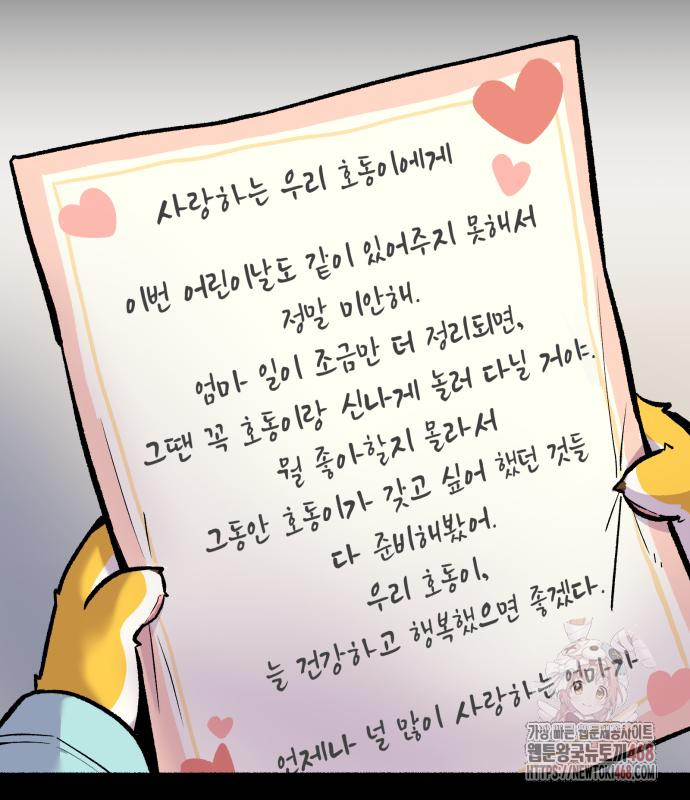 사랑하는 우리 호동이에게
이번 어린이날도 같이 있어주지 못해서
정말 미안해.
엄마 일이 조금만 더 정리되면,
그땐 꼭 호동이랑 신나게 놀러 다닐 거야.
뭘 좋아할지 몰라서
그동안 호동이가 갖고 싶어 했던 것들
다 준비해봤어.
우리 호동이,
늘 건강하고 행복했으면 좋겠다.
언제나 널 많이 사랑하는 엄마가
가장 빠른 웹툰제공사이트
웹툰왕국뉴토끼468
HTTPS://NEWTOKI468.COM